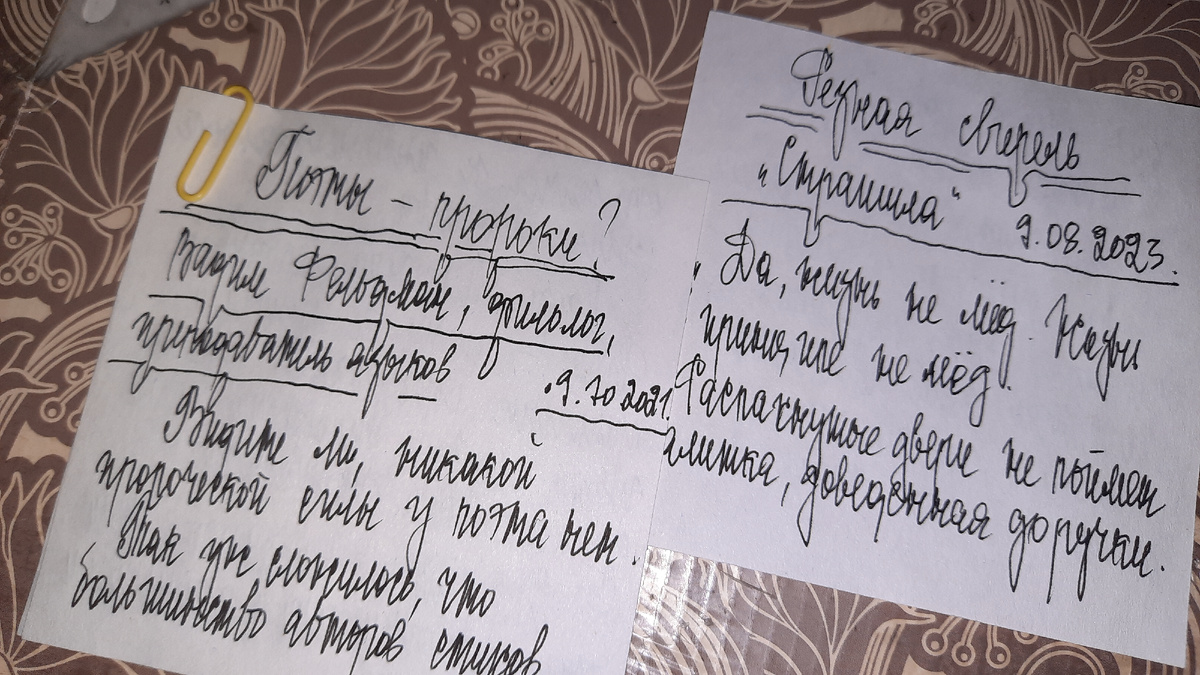 Поэты – пророки?
Вадим Фельдман, филолог,
преподаватель языков
9.10.2021.
Видите ли, никакой
пророческой силы у поэта нет.
Так уж сложилось, что
большинство авторов стихов
Резная свирель
"Страшила" 9.08.2023.
Да, жизнь не мёд. Жизнь
принципе не мёд.
Распахнутые двери не поймет
улитка, доведённая до ручки.